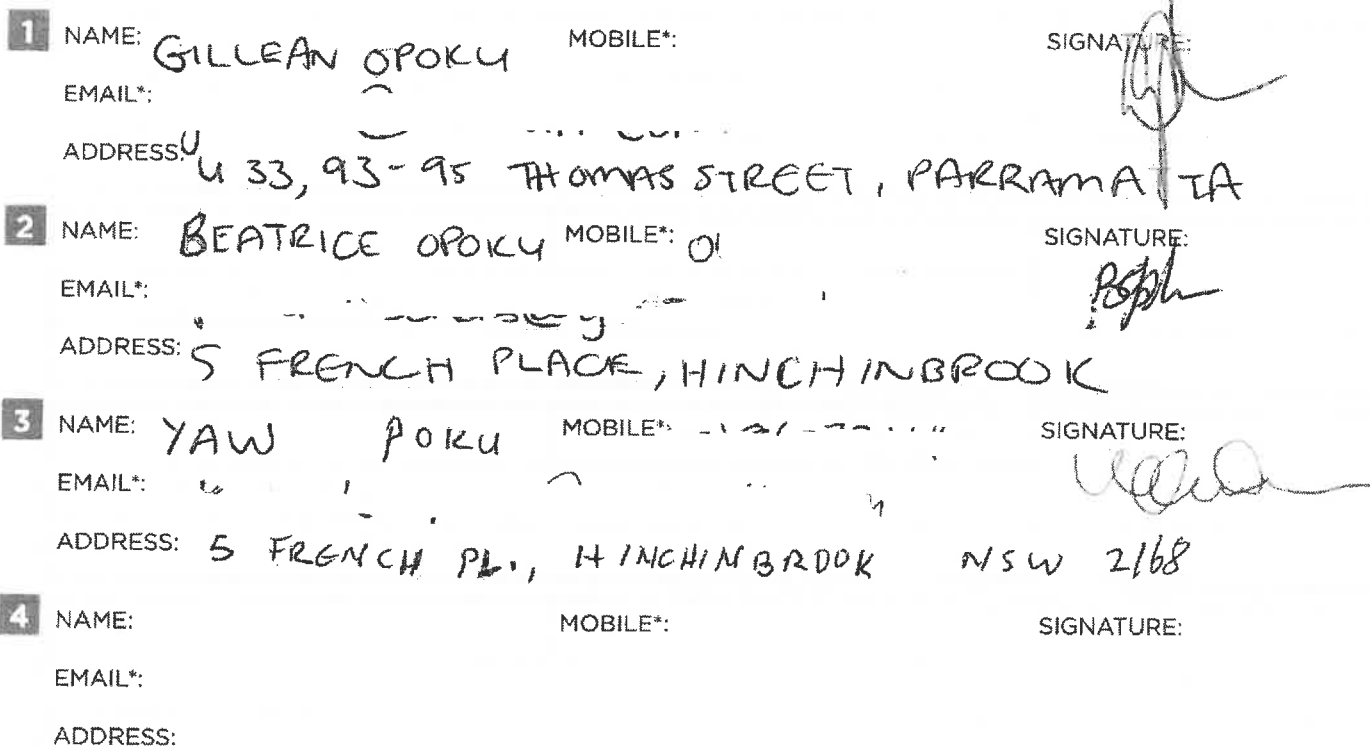 1 NAME: GILLEAN OPOKU MOBILE*: SIGNATURE:
EMAIL*:
ADDRESS: U 33, 93-95 THOMAS STREET, PARRAMATTA
2 NAME: BEATRICE OPOKU MOBILE*: SIGNATURE:
EMAIL*:
ADDRESS: 5 FRENCH PLACE, HINCHINBROOK
3 NAME: YAW POKU MOBILE*: SIGNATURE:
EMAIL*:
ADDRESS: 5 FRENCH PL., HINCHINBROOK NSW 2168
4 NAME: MOBILE*: SIGNATURE:
EMAIL*:
ADDRESS: